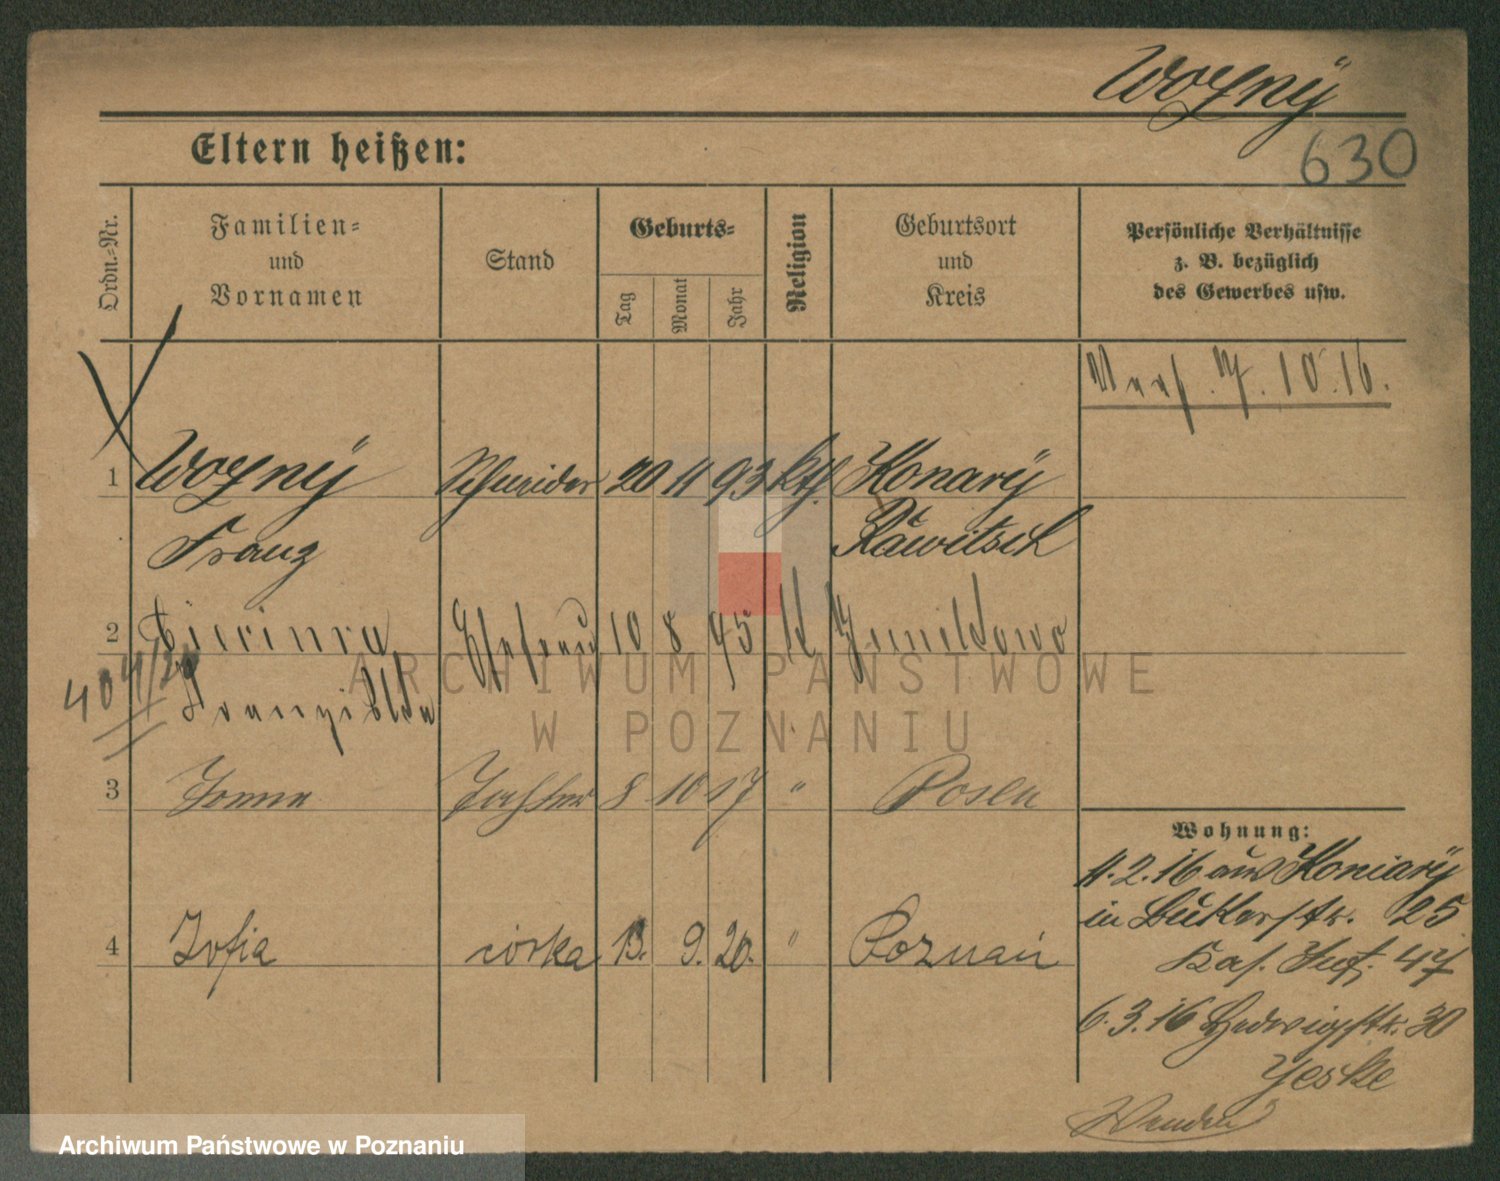 Woyny
630
Eltern heißen:
Ordn.-Nr.
Familien-
und
Vornamen
Stand
Geburts-
Tag
Monat
Jahr
Religion
Geburtsort
und
Kreis
Persönliche Verhältnisse
z. B. bezüglich
des Gewerbes usw.
7.10.16.
1 Woyny Schneider 20 11 93 kth. Konary
Franz Rawitsch
2 Ehefrau 10 8 95 k
404/20
3 Irena Tochter 8 10 17 " Posen
4 Zofia córka 13. 9. 20. " Poznań
Wohnung:
11.2.16 aus Koniary
in Bukerstr. 25
47
6.3.16 Hedwigstr. 30
Jeske
ARCHIWUM PAŃSTWOWE
W POZNANIU
Archiwum Państwowe w Poznaniu